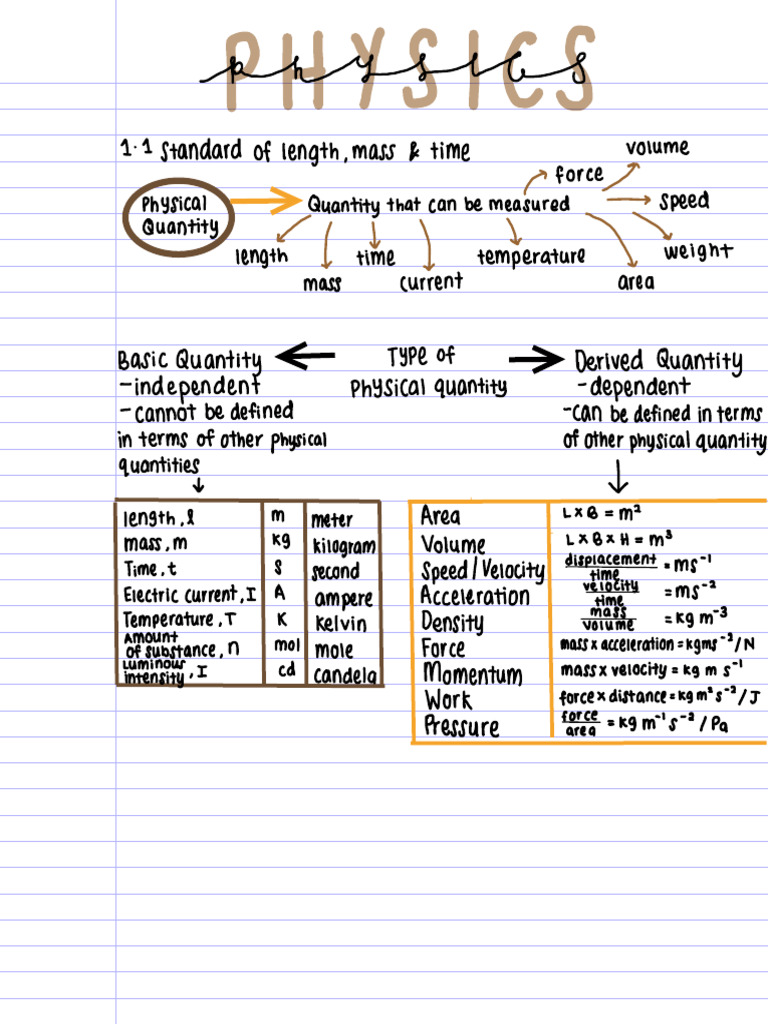 PHYSICS
physics
1.1 Standard of length, mass & time
volume
force
Physical Quantity
Quantity that can be measured
speed
length
time
temperature
weight
mass
current
area
Type of
Physical quantity
Basic Quantity
-independent
-cannot be defined
in terms of other physical
quantities
Derived Quantity
-dependent
-can be defined in terms
of other physical quantity
length, l m meter
mass, m kg kilogram
Time, t s second
Electric current, I A ampere
Temperature, T K kelvin
Amount of substance, n mol mole
Luminous intensity, I cd candela
Area L x B = m²
Volume L x B x H = m³
Speed/Velocity displacement/time = ms⁻¹
Acceleration velocity/time = ms⁻²
Density mass/volume = kg m⁻³
Force mass x acceleration = kgms⁻²/N
Momentum mass x velocity = kg m s⁻¹
Work force x distance = kg m² s⁻²/J
Pressure force/area = kg m⁻¹ s⁻²/Pa